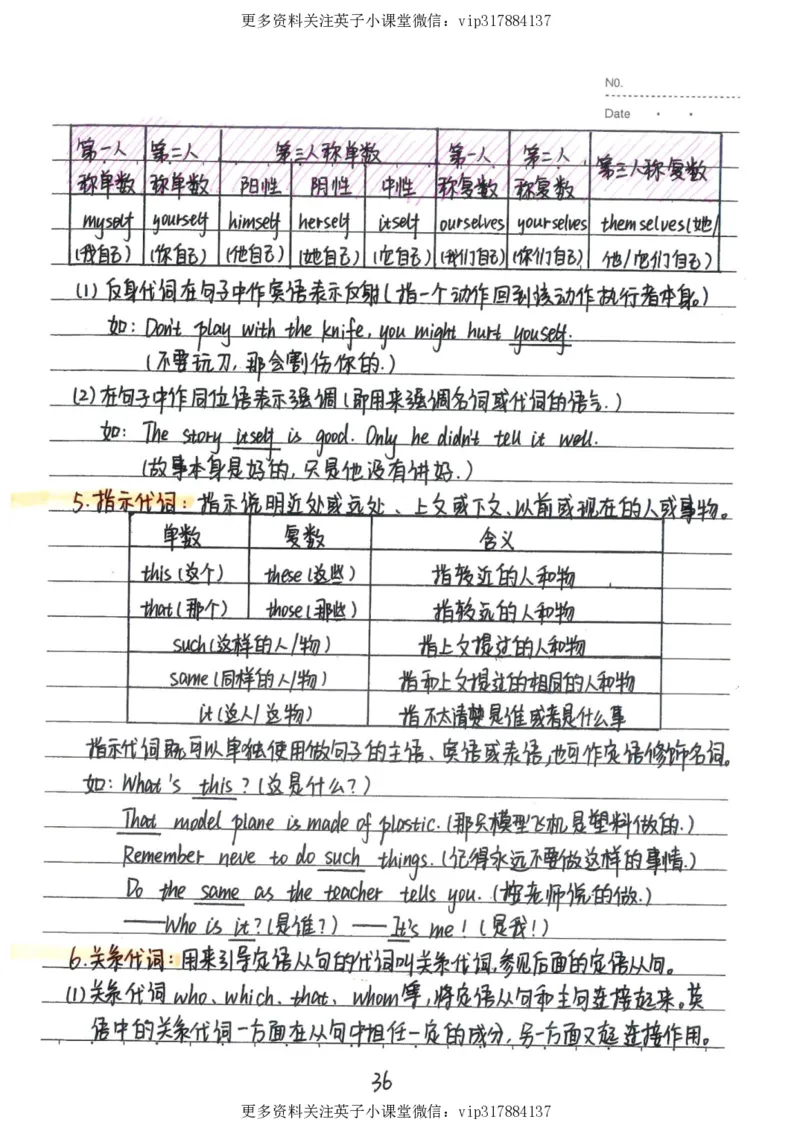 更多资料关注英子小课堂微信：vip317884137
N0.
Date
第一人称单数 第二人称单数 第三人称单数 第一人称复数 第二人称复数 第三人称复数
阳性 阴性 中性
myself yourself himself herself itself ourselves yourselves themselves(她/
(我自己) (你自己) (他自己) (她自己) (它自己) (我们自己) (你们自己) 他/它们自己)
(1) 反身代词在句子中作宾语表示反射(指一个动作回到该动作执行者本身。)
如: Don't play with the knife, you might hurt youself.
(不要玩刀, 那会割伤你的.)
(2) 在句子中作同位语表示强调(即用来强调名词或代词的语气.)
如: The story itself is good. Only he didn't tell it well.
(故事本身是好的, 只是他没有讲好.)
5. 指示代词: 指示说明近处或远处、上文或下文、以前或现在的人或事物。
单数 复数 含义
this (这个) these (这些) 指较近的人和物
that (那个) those (那些) 指较远的人和物
such (这样的人/物) 指上文提过的人和物
same (同样的人/物) 指和上文提过的相同的人和物
it (这人/这物) 指不太清楚是谁或者是什么事
指示代词既可以单独使用做句子的主语、宾语或表语, 也可作定语修饰名词。
如: What's this? (这是什么?)
That model plane is made of plastic. (那只模型飞机是塑料做的.)
Remember neve to do such things. (记得永远不要做这样的事情.)
Do the same as the teacher tells you. (按老师说的做.)
——Who is it? (是谁?) —— It's me! (是我!)
6. 关系代词: 用来引导定语从句的代词叫关系代词, 参见后面的定语从句。
(1) 关系代词 who、which、that、whom等, 将定语从句和主句连接起来。英
语中的关系代词一方面在从句中担任一定的成分, 另一方面又起连接作用。
36
更多资料关注英子小课堂微信：vip317884137